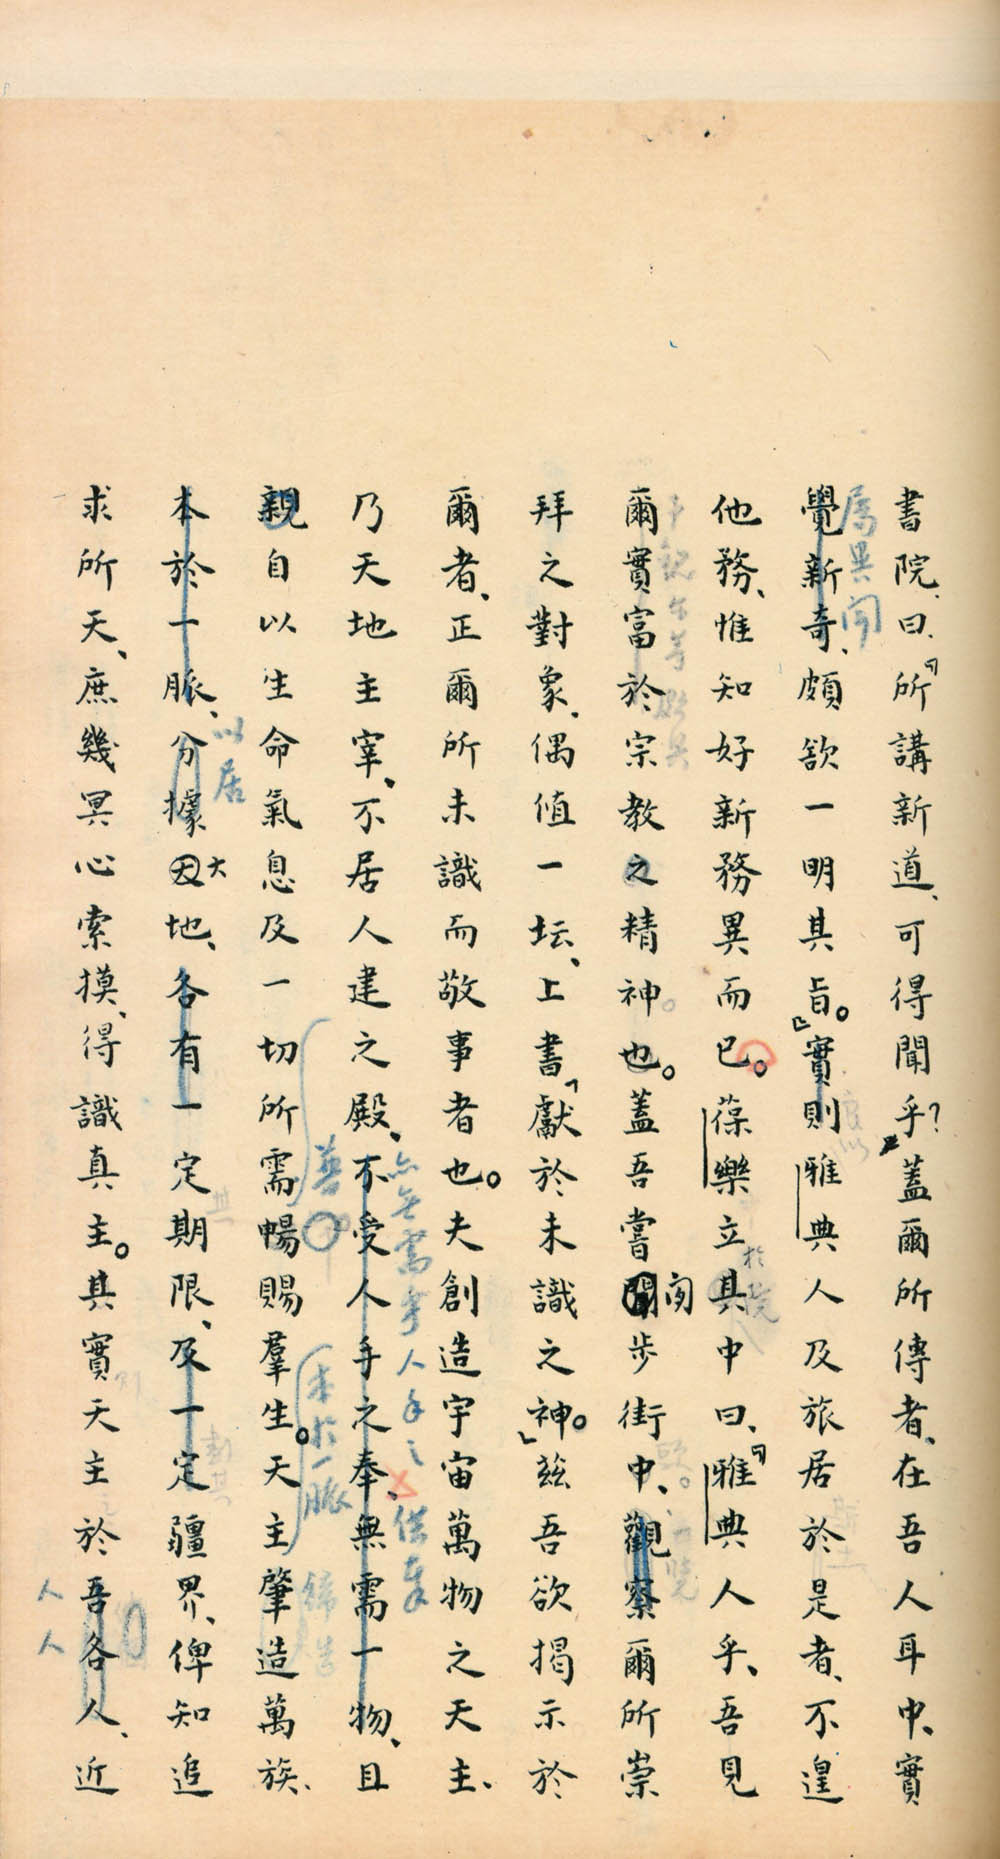 書院、曰、『所講新道、可得聞乎？蓋爾所傳者、在吾人耳中、實
屬異聞
覺新奇、頗欲一明其旨。』實則雅典人及旅居於是者、不遑
他務、惟知好新務異而已。葆樂立其中曰、『雅典人乎、吾見
於院
爾實富於宗教之精神也。蓋吾嘗閒步街中、觀察爾所崇
拜之對象、偶值一坛、上書「獻於未識之神。」茲吾欲揭示於
爾者、正爾所未識而敬事者也。夫創造宇宙萬物之天主、
乃天地主宰、不居人建之殿、不受人手之奉、無需一物、且
亦無需乎人手之供奉
親自以生命氣息及一切所需暢賜羣生。天主肇造萬族、
普
本於一脈
締造
本於一脈、分據大地、各有一定期限、及一定疆界、俾知追
以居
求所天、庶幾冥心索摸、得識真主。其實天主於吾各人、近
人人